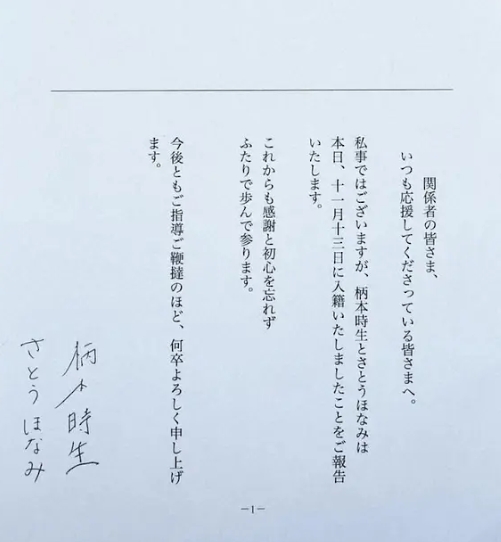 関係者の皆さま、
いつも応援してくださっている皆さまへ。
私事ではございますが、柄本時生とさとうほなみは
本日、十一月十三日に入籍いたしましたことをご報告
いたします。
これからも感謝と初心を忘れず
ふたりで歩んで参ります。
今後ともご指導ご鞭撻のほど、何卒よろしく申し上げ
ます。
柄本時生
さとうほなみ
―1―